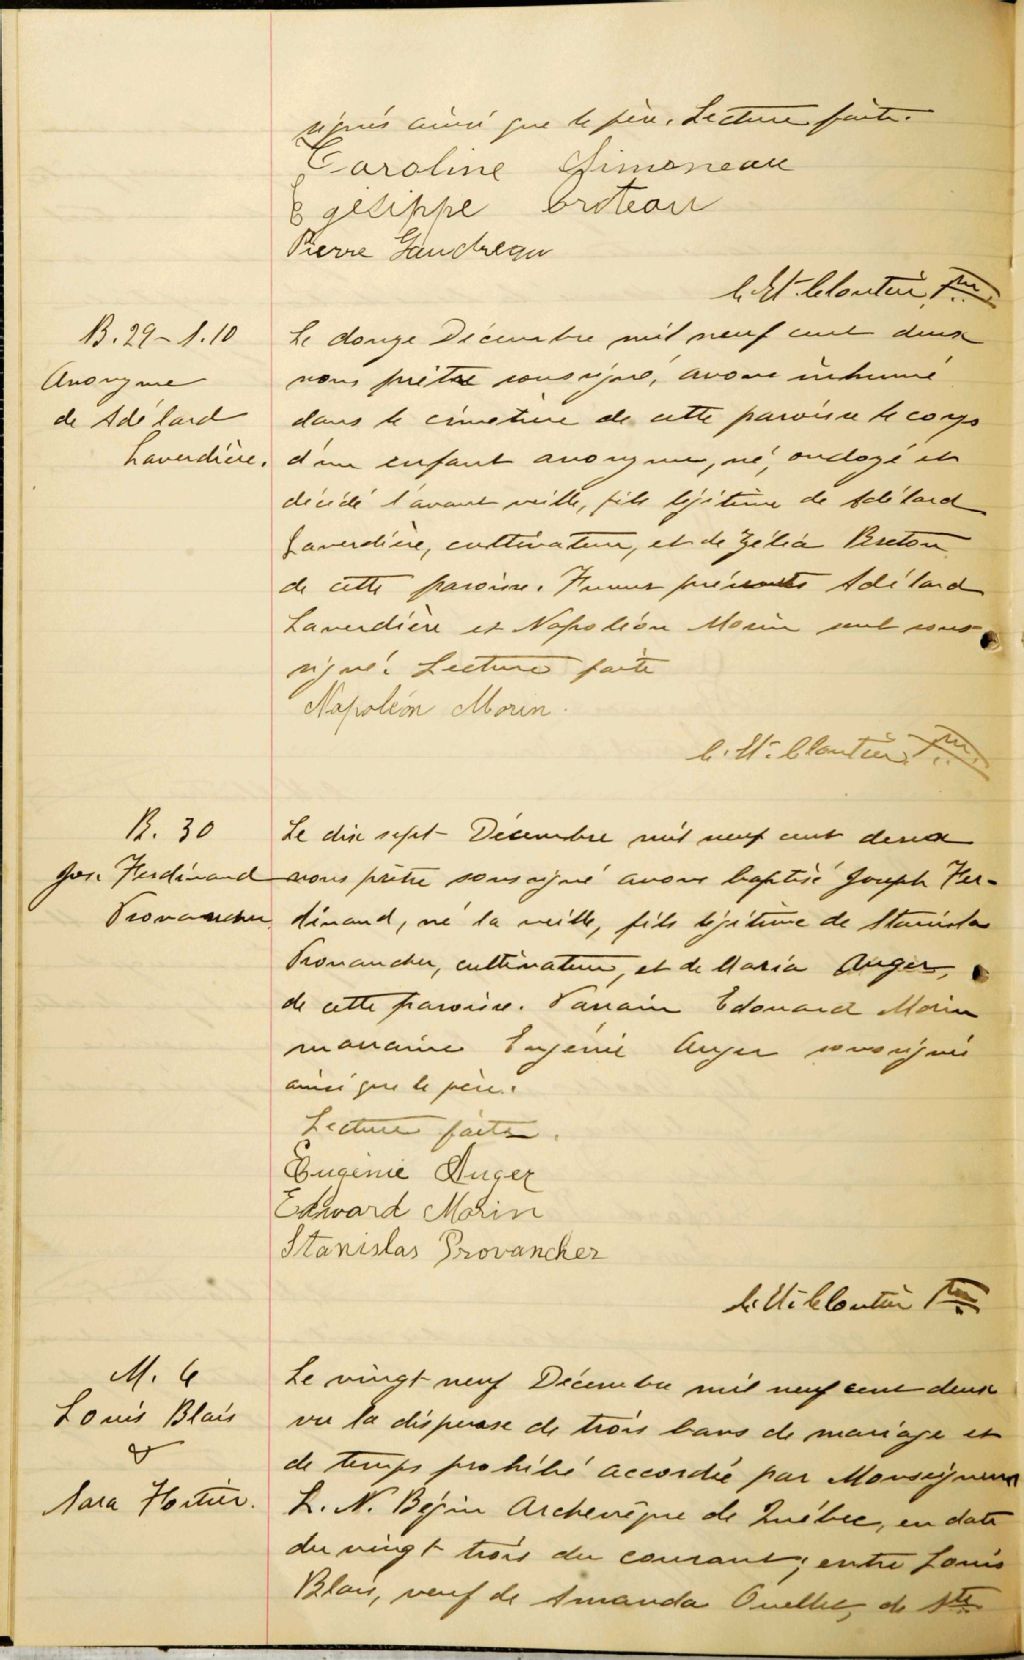 signés ainsi que le père. Lecture faite.
Caroline Simoneau
Egésippe Croteau
Pierre Gaudreau
Cloutier, Ptre.
B. 29 - S. 10
Anonyme
de Adélard
Laverdière.
Le douze Décembre mil neuf cent deux
nous prêtre soussigné, avons inhumé
dans le cimetière de cette paroisse le corps
d'un enfant anonyme, né, ondoyé et
décédé l'avant veille, fils légitime de Adélard
Laverdière, cultivateur, et de Zélia Breton
de cette paroisse. Furent présents Adélard
Laverdière et Napoléon Morin seul sous-
signé. Lecture faite
Napoléon Morin.
Cloutier, Ptre.
B. 30
Jos. Ferdinand
Provancher
Le dix sept Décembre mil neuf cent deux
nous prêtre soussigné avons baptisé Joseph Fer-
dinand, né la veille, fils légitime de Stanislas
Provancher, cultivateur, et de Maria Auger,
de cette paroisse. Parrain Edouard Morin
marraine Eugénie Auger soussignés
ainsi que le père.
Lecture faite.
Eugénie Auger
Edward Morin
Stanislas Provancher
Cloutier Ptre
M. 6
Louis Blais
&
Sara Fortier.
Le vingt neuf Décembre mil neuf cent deux
vu la dispense de trois bans de mariage et
de temps prohibé accordée par Monseigneur
L. N. Bégin Archevêque de Québec, en date
du vingt trois du courant; entre Louis
Blais, veuf de Amanda Ouellet, de Ste